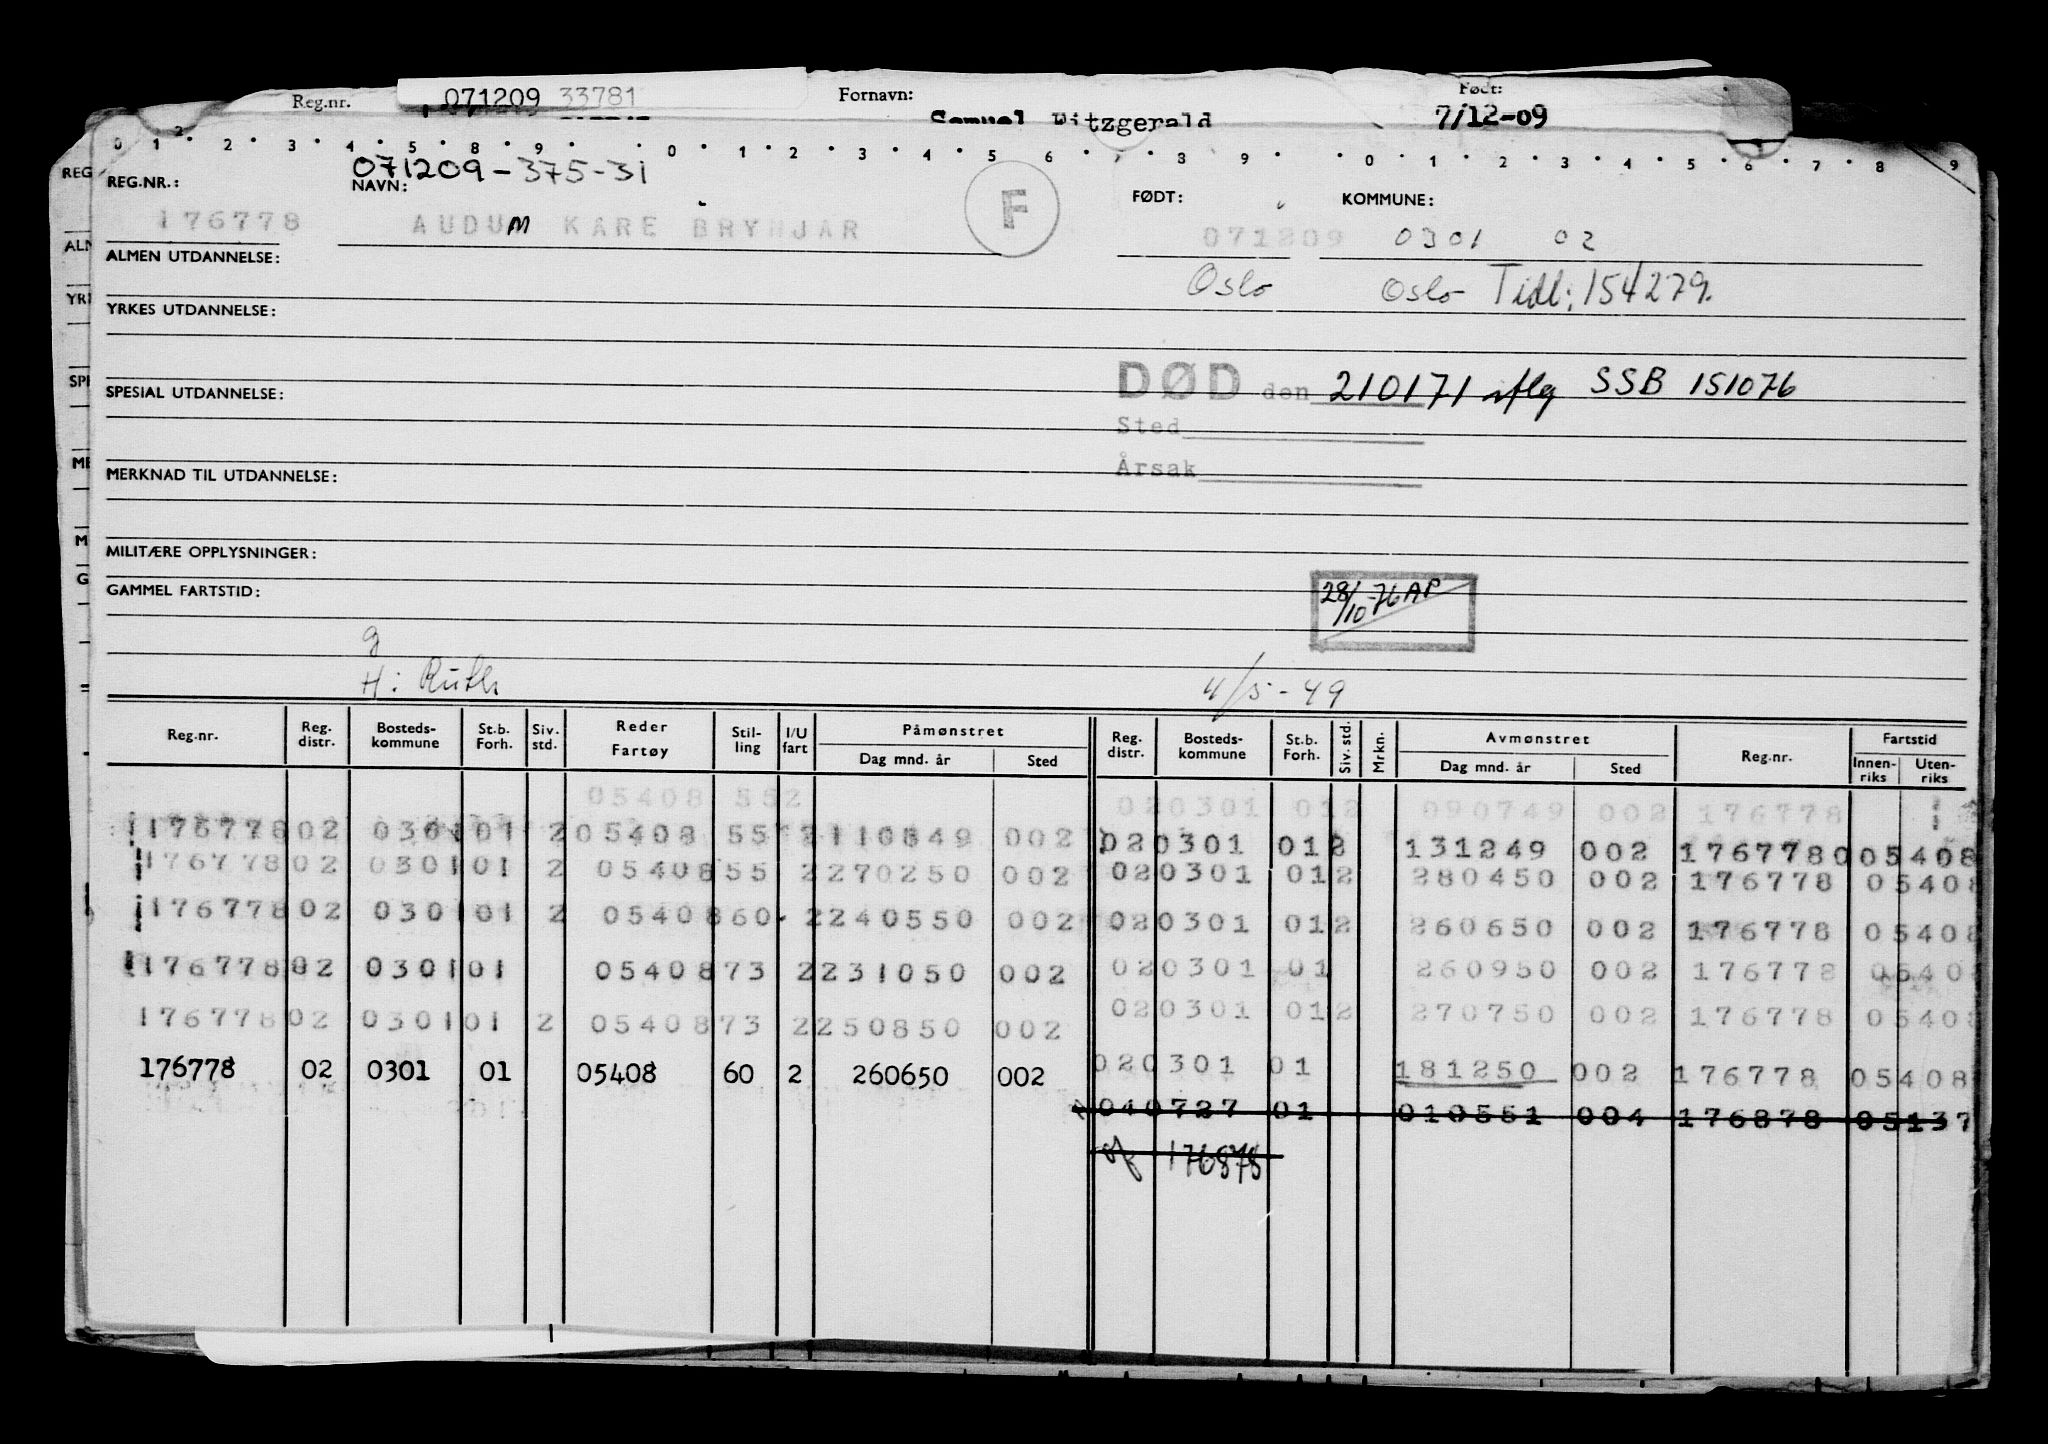 Reg.nr. 071209 33781 Fornavn: Samuel Fitzgerald Født: 7/12-09
0 1 2 3 4 5 8 9 0 1 2 3 4 5 6 7 8 9 0 1 2 3 4 5 6 7 8 9
071209-375-31
REG.NR.: NAVN: F FØDT: KOMMUNE:
176778 AUDUM KARE BRYNJAR 071209 0301 02
ALMEN UTDANNELSE:
Oslo Oslo Tidl: 154279.
YRKES UTDANNELSE:
DØD den 210171 iflg SSB 151076
SPESIAL UTDANNELSE:
Sted
Årsak
MERKNAD TIL UTDANNELSE:
MILITÆRE OPPLYSNINGER:
GAMMEL FARTSTID:
28/10-76 AP
g
H: Ruth 4/5-49
Reg.nr. Reg. distr. Bosteds-kommune St.b. Forh. Siv. std. Reder Fartøy Stil-ling I/U fart Påmønstret Dag mnd. år Sted Reg. distr. Bosteds-kommune St.b. Forh. Siv. std. Mrkn. Avmønstret Dag mnd. år Sted Reg.nr. Fartstid Innen-riks Uten-riks
05408 552 020301 012 090749 002 176778
176778 02 0301 01 2 05408 55 2 110849 002 020301 012 131249 002 176778 0 05408
176778 02 0301 01 2 05408 55 2 270250 002 020301 012 280450 002 176778 05408
176778 02 0301 01 2 05408 60 2 240550 002 020301 012 260650 002 176778 05408
176778 02 0301 01 05408 73 2 231050 002 020301 01 260950 002 176778 05408
176778 02 0301 01 2 05408 73 2 250850 002 020301 012 270750 002 176778 05408
176778 02 0301 01 05408 60 2 260650 002 020301 01 181250 002 176778 05408
040727 01 010551 004 176878 05137
176878